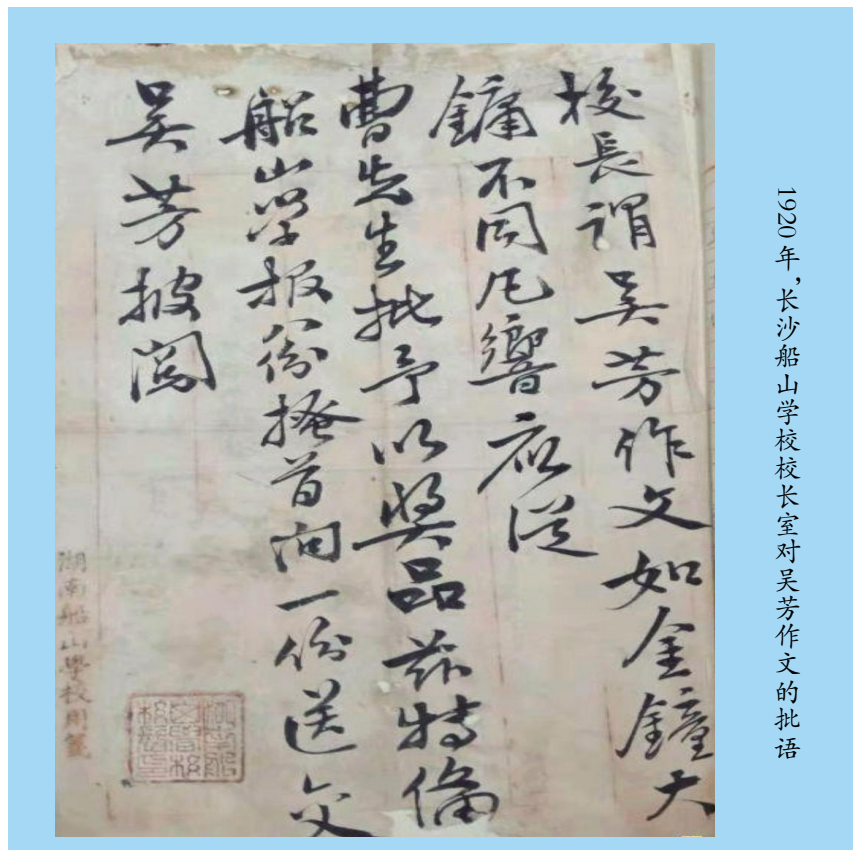 1920年，长沙船山学校校长室对吴芳作文的批语
校長謂吴芳作文如金鐘大
鏞不同凡響應从
曹先生批予以奬品兹特備
船山学报八份搔首问一份送交
吴芳披閲
湖南船山學校用箋